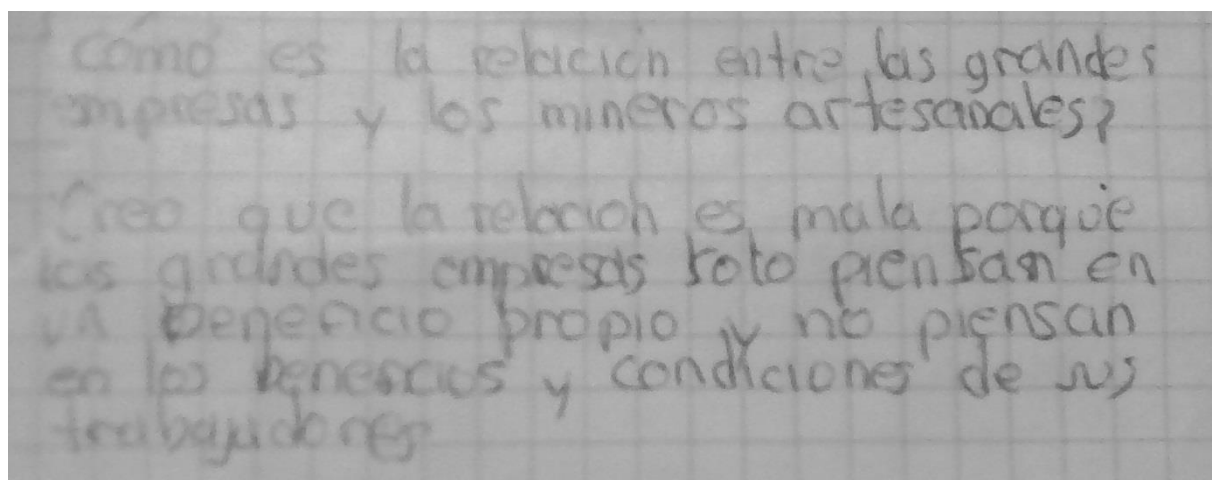 como es la relación entre las grandes
empresas y los mineros artesanales?
Creo que la relacion es mala porque
las grandes empresas solo piensan en
un beneficio propio y no piensan
en los beneficios y condiciones de sus
trabajadores